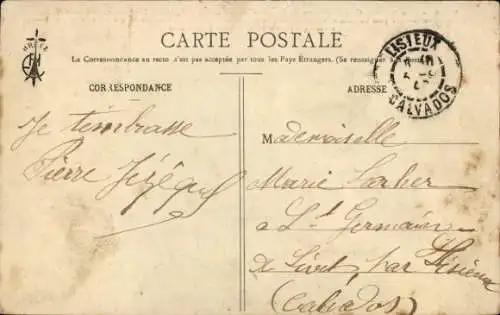 CARTE POSTALE
La Correspondance au recto n'est pas acceptée par tous les Pays Étrangers. (Se renseigner
CORRESPONDANCE
ADRESSE
LISIEUX
CALVADOS
Je t'embrasse
Pierre Jézéquel
Mademoiselle
Marie
a St Germain
de Livet par Lisieux
(Calvados)